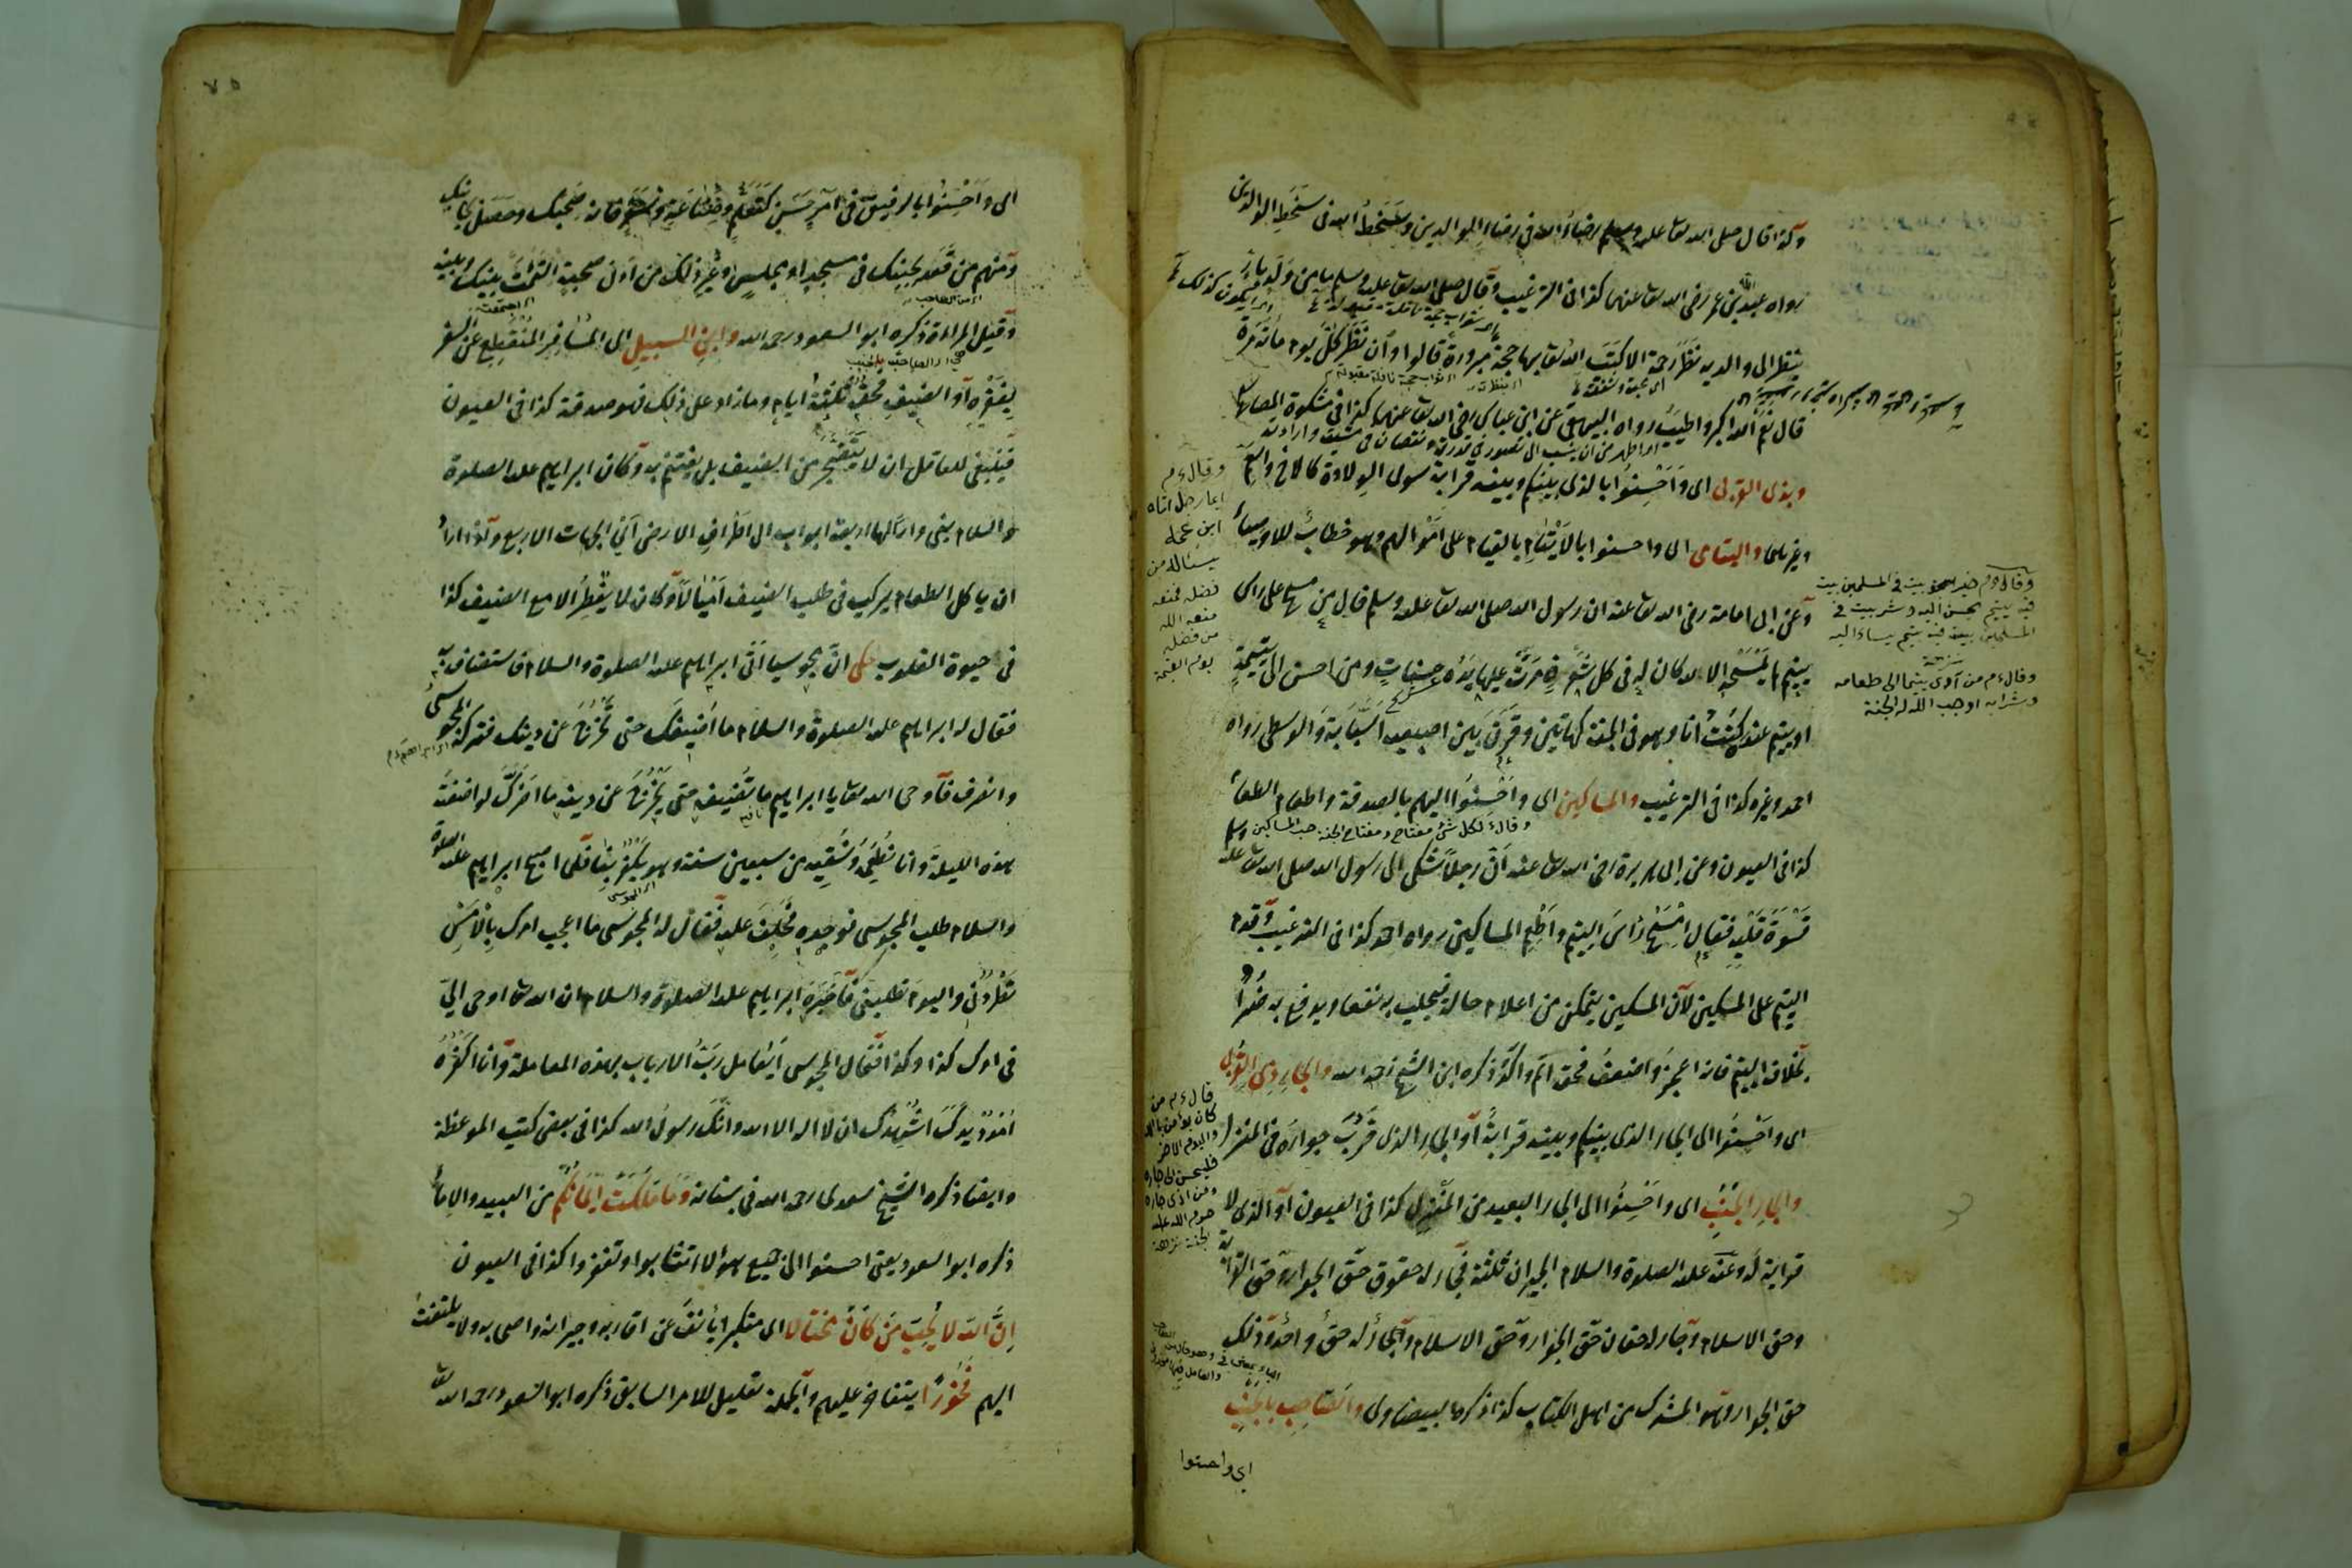 وكذا قال صلى الله تعا عليه وسلم رضاء الله في رضاء الوالدين وسخط الله في سخط الوالدين
رواه عبد الله بن عمر رضى الله تعا عنهما كذا فى الترغيب وقال صلى الله تعا عليه وسلم ما من ولد بار
ينظر الى والديه نظر رحمة الا كتب الله تعا بها حجة مبرورة قالوا وان نظر كل يوم مائة مرة
قال نعم الله اكبر واطيب رواه البيهقى عن ابن عباس رضى الله تعا عنهما كذا فى مشكوة المصابيح
وبذى القربى اى واحسنوا بالذى بينكم وبينه قرابة سوى الولادة كالاخ والعم
وغيرهما واليتامى اى واحسنوا بالايتام بالقيام على اموالهم وهو خطاب للاوصياء
وعن ابى امامة رضى الله تعا عنه ان رسول الله صلى الله تعا عليه وسلم قال من مسح على راس
يتيم لم يمسحه الا لله كان له فى كل شعرة مرت عليها يده حسنات ومن احسن الى يتيمة
او يتيم عنده كنت انا وهو فى الجنة كهاتين وفرق بين اصبعيه السبابة والوسطى رواه
احمد وغيره كذا فى الترغيب والمساكين اى واحسنوا اليهم بالصدقة واطعام الطعام
وقال ع لكل شئ مفتاح ومفتاح الجنة حب المساكين
كذا فى العيون وعن ابى هريرة رضى الله تعا عنه ان رجلا شكى الى رسول الله صلى الله تعا عليه وسلم
قسوة قلبه فقال امسح رأس اليتيم واطعم المساكين رواه احمد كذا فى الترغيب وقدم
اليتيم على المسكين لان المسكين يتمكن من اعلام حاله فيجلب به نفعا ويدفع به ضرا
بخلاف اليتيم فانه اعجز واضعف فحقه اتم واكد ذكره ابن الشيخ رحمه الله والجار ذى القربى
اى واحسنوا الى الجار الذى بينكم وبينه قرابة او الجار الذى قرب جواره فى المنزل
والجار الجنب اى واحسنوا الى الجار البعيد من المنزل كذا فى العيون او الذى لا
قرابة له وعنه عليه الصلوة والسلام الجيران ثلثة فجار له حقوق حق الجوار وحق القرابة
وحق الاسلام وجار له حقان حق الجوار وحق الاسلام وجار له حق واحد وذلك
حق الجوار وهو المشرك من اهل الكتاب كذا ذكره البيضاوى والصاحب بالجنب
اى واحسنوا
وقال ع م
ايما رجل اتاه
ابن عمه
يسئاله من
فضله فمنعه
منعه الله
من فضله
يوم القيمة
وقال ع م خير بيت فى المسلمين بيت
فيه يتيم يحسن اليه وشر بيت فى
المسلمين بيت فيه يتيم يساء اليه
وقال ع م من آوى يتيما الى طعامه
وشرابه اوجب الله له الجنة
قال ع م من
كان يؤمن بالله
واليوم الاخر
فليحسن الى جاره
ومن اذى جاره
حرم الله عليه
الجنة
اى واحسنوا بالرفيق فى امر حسن كتعلم وصناعة وسفر فانه صحبك وحصل بجانبك
ومنهم من قعد بجنبك فى مسجد او مجلس او غير ذلك من ادنى صحبة التامت بينك وبينه
وقيل المراءة ذكره ابو السعود رحمه الله وابن السبيل اى المسافر المنقطع عن السفر
بفقره او الضيف فحقه ثلثة ايام وما زاد على ذلك فهو صدقة كذا فى العيون
فينبغى للعاقل ان لا يتضجر من الضيف بل يغتنم به وكان ابراهيم عليه الصلوة
والسلام بنى دارا لها اربعة ابواب الى اطراف الارض اى الجهات الاربع واذا اراد
ان ياكل الطعام يركب فى طلب الضيف اميالا وكان لا يفطر الا مع الضيف كذا
فى حيوة القلوب حكى ان مجوسيا اتى ابراهيم عليه الصلوة والسلام فاستضاف به
فقال له ابراهيم عليه الصلوة والسلام ما اضيفك حتى تخرج عن دينك فتركه المجوسى
وانصرف فاوحى الله تعا يا ابراهيم ما تضيفه حتى يخرج عن دينه ما اضرك لو اضفته
هذه الليلة وانا نطعمه ونسقيه من سبعين سنة وهو يكفر بنا فلما اصبح ابراهيم عليه الصلوة
والسلام طلب المجوسى فوجده فحلف عليه فقال له المجوسى ما اعجب امرك بالامس
تطردنى واليوم تطلبنى فاخبره ابراهيم عليه الصلوة والسلام ان الله تعا اوحى الى
فى امرك كذا وكذا فقال المجوسى ايعامل رب الارباب بهذه المعاملة وانا اكفره
امدد يدك اشهدك ان لا اله الا الله وانك رسول الله كذا فى بعض كتب الموعظة
وايضا ذكره الشيخ سعدى رحمه الله فى بستانه وما ملكت ايمانكم من العبيد والاماء
ذكره ابو السعود يعنى احسنوا الى جميع هؤلاء تثابوا وتفوزوا كذا فى العيون
ان الله لا يحب من كان مختالا اى متكبرا يأنف عن اقاربه وجيرانه واصحابه ولا يلتفت
اليهم فخورا يتفاخر عليهم والجملة تعليل للامر السابق ذكره ابو السعود رحمه الله تعا